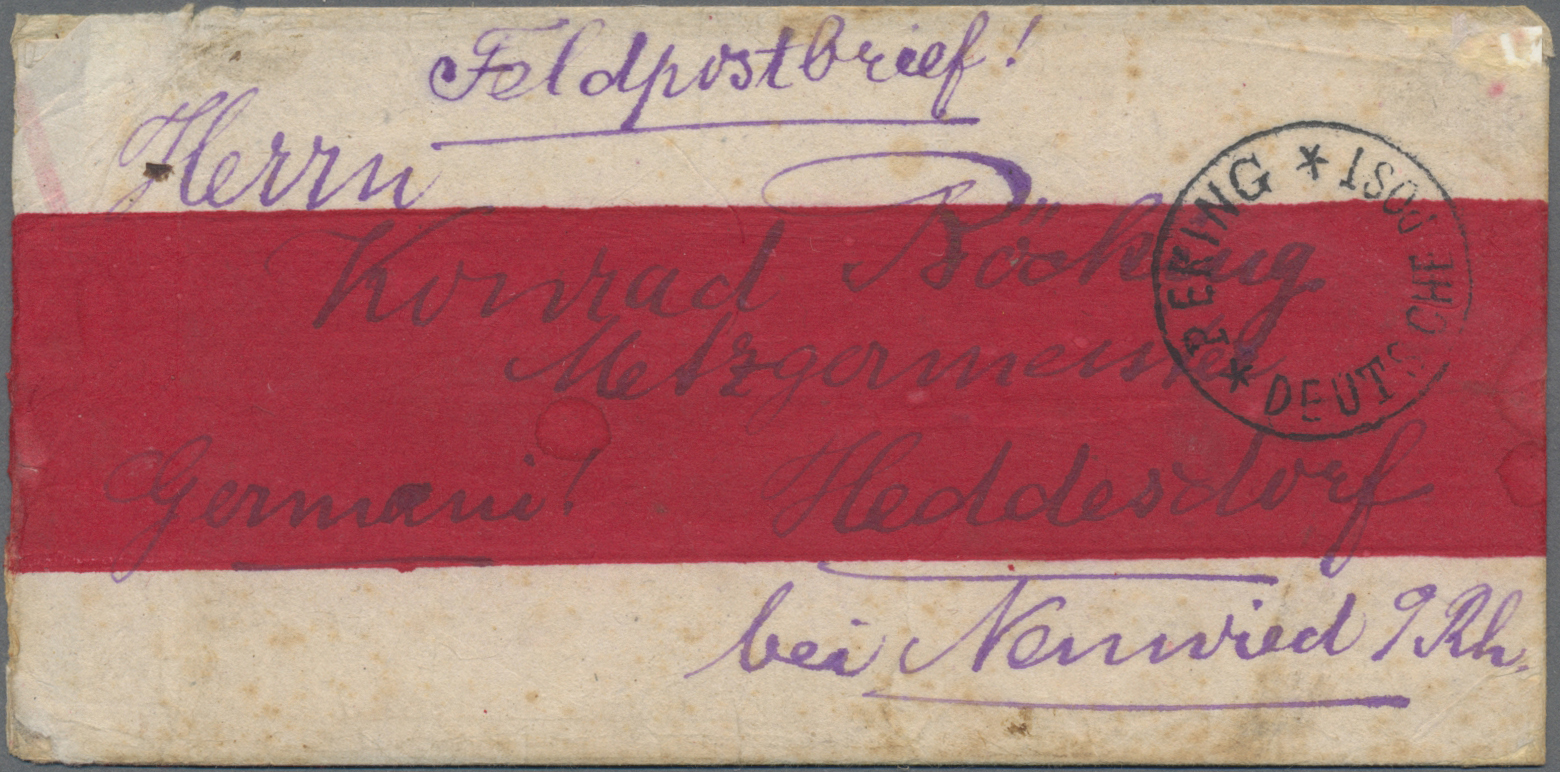 Feldpostbrief!
Herrn
Konrad Böcking
Metzgermeister
Germani! Heddesdorf
bei Neuwied a/Rh.
* PEKING * DEUTSCHE POST